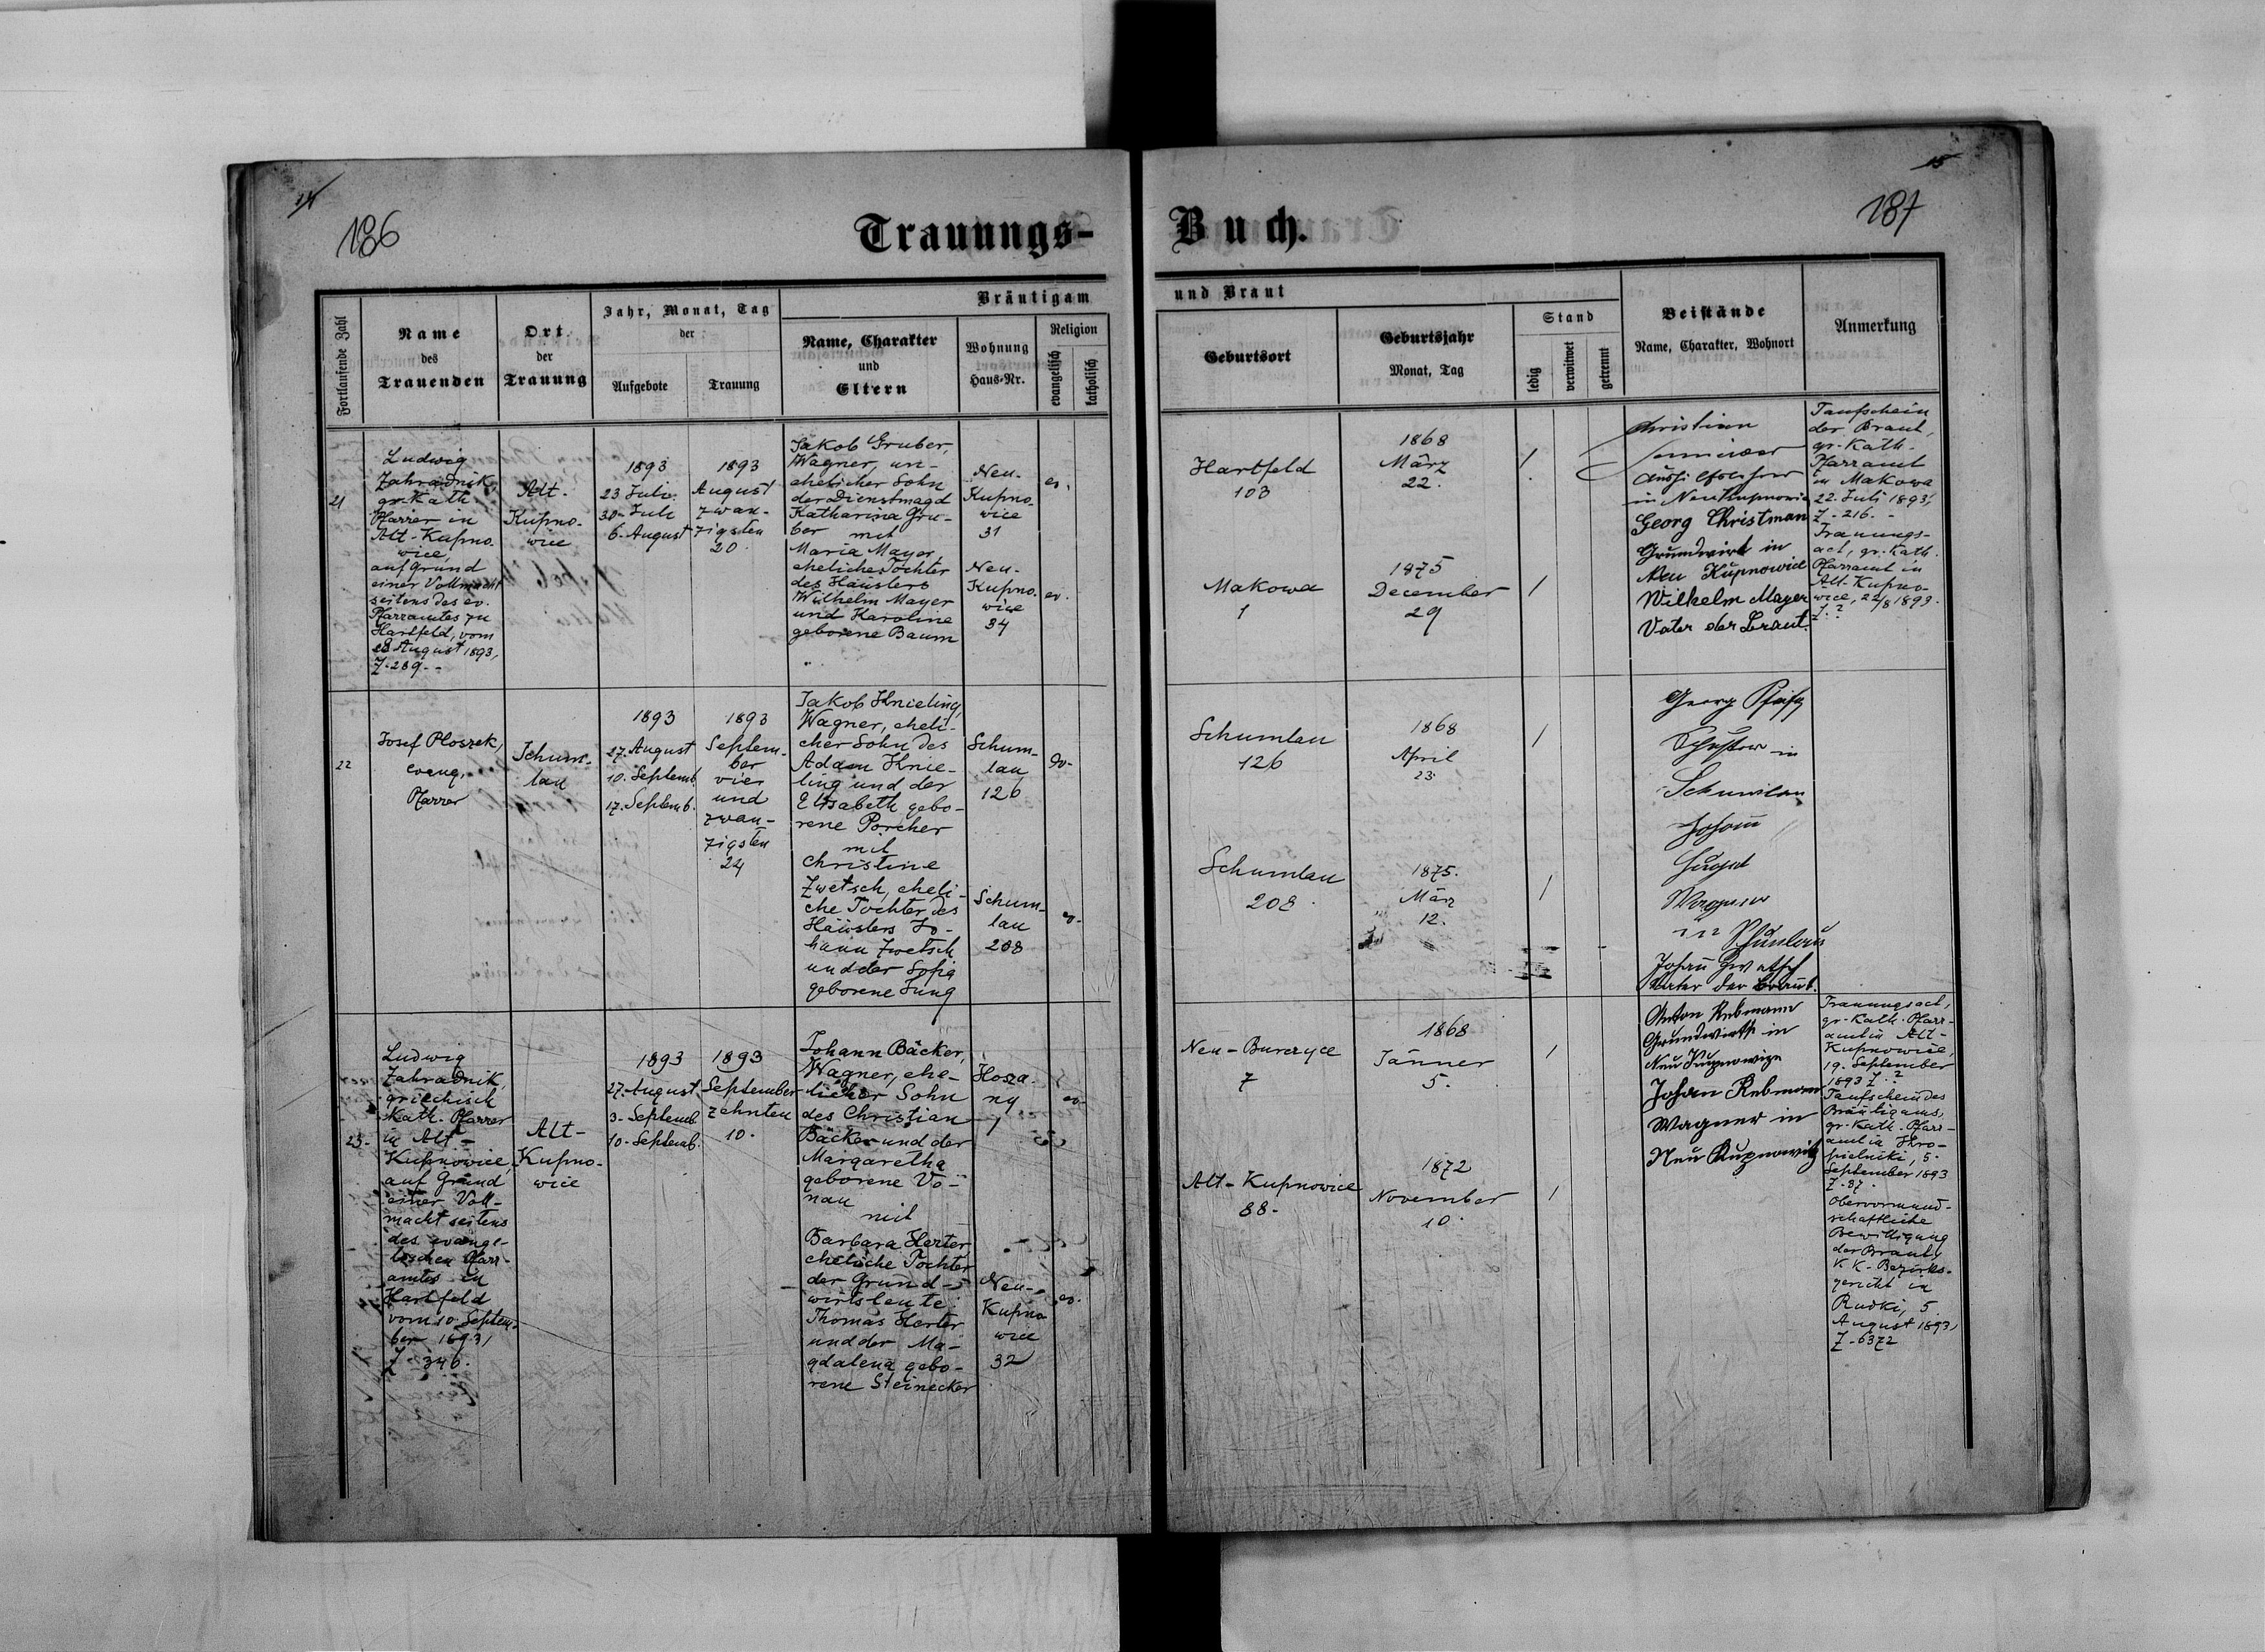 186
187
Trauungs-
Buch.
Fortlaufende Zahl
Name
des
Trauenden
Ort
der
Trauung
Jahr, Monat, Tag
der
Aufgebote
Trauung
Bräutigam
Name, Charakter
und
Eltern
Wohnung
Haus-Nr.
Religion
evangelisch
katholisch
und Braut
Geburtsort
Geburtsjahr
Monat, Tag
Stand
ledig
verwitwet
getrennt
Beistände
Name, Charakter, Wohnort
Anmerkung
21
Ludwig
Zahradnik,
gr. Kath.
Pfarrer in
Alt-Kupno-
wice,
auf Grund
einer Vollmacht
seitens des ev.
Pfarramtes zu
Hartfeld, vom
August 1893,
Z. 289.-
Alt-
Kupno-
wice
1893
23 Juli.
30. Juli
6. August
1893
August
zwan-
zigsten
20.
Jakob Gruber,
Wagner, un-
ehelicher Sohn
der Dienstmagd
Katharina Gru-
ber mit
Maria Mayer,
eheliche Tochter
des Häuslers
Wilhelm Mayer
und Karoline
geborene Baum
Neu-
Kupno-
wice
31
Neu-
Kupno-
wice
34
ev.
ev.
Hartfeld
103
Makowa
1
1868
März
22.
1875
December
29
/
/
Christian
in Neu Kupnowice
Georg Christman
Grundwirt in
Neu Kupnowice
Wilhelm Mayer
Vater der Braut.
Taufschein
der Braut,
gr. Kath.
Pfarramt
in Makowa
22. Juli 1893,
Z. 216.-
Trauungs-
act, gr. Kath.
Pfarramt in
Alt-Kupno-
wice, 22/8 1893.
Z. ?
22
Josef Ploszek,
evang.
Pfarrer
Schum-
lau
1893
27. August
10. Septemb.
17. Septemb.
1893
Septem-
ber
vier
und
zwan-
zigsten
24
Jakob Knieling,
Wagner, eheli-
cher Sohn des
Adam Knie-
ling und der
Elisabeth gebo-
rene Porcher
mit
Christine
Zwetsch, eheli-
che Tochter des
Häuslers Jo-
hann Zwetsch
und der Sofia
geborene Jung
Schum-
lau
126
Schum-
lau
208
ev.
ev.
Schumlau
126
Schumlau
208
1868
April
23.
1875.
März
12.
/
/
Georg
Schuster in
Schumlau
Johann
Wagner
in Schumlau
Johann Zwetsch
Vater der Braut.
23.
Ludwig
Zahradnik,
griechisch
Kath. Pfarrer
in Alt-
Kupnowice,
auf Grund
einer Voll-
macht seitens
des evange-
lischen Pfarr-
amtes in
Hartfeld
vom 10. Septem-
ber 1893,
Z. 346.
Alt-
Kupno-
wice
1893
27. August
3. Septemb.
10. Septemb.
1893
September
zehnten
10.
Johann Bäcker,
Wagner, ehe-
licher Sohn
des Christian
Bäcker und der
Margaretha
geborene Vo-
nau
mit
Barbara Herter
eheliche Tochter
der Grund-
wirtsleute
Thomas Herter
und der Ma-
gdalena gebo-
rene Steinecker
Hosza-
ny
1
Neu-
Kupno-
wice
32
ev.
ev.
Neu-Burczyce
7
Alt-Kupnowice
88.
1868
Jänner
5.
1872
November
10.
/
/
Anton Rebmann
Grundwirth in
Neu Kupnowize
Johann Rebmann
Wagner in
Neu Kupnowitz
Trauungsact,
gr. Kath. Pfarr-
amt in Alt-
Kupnowice,
19. September
1893 Z. ?
Taufschein des
Bräutigams,
gr. Kath. Pfarr-
amt in Chro-
pielniki, 5.
September 1893
Z. 87.
Obervormund-
schaftliche
Bewilligung
der Braut,
K.K. Bezirks-
gericht in
Rudki, 5
August 1893,
Z. 6372